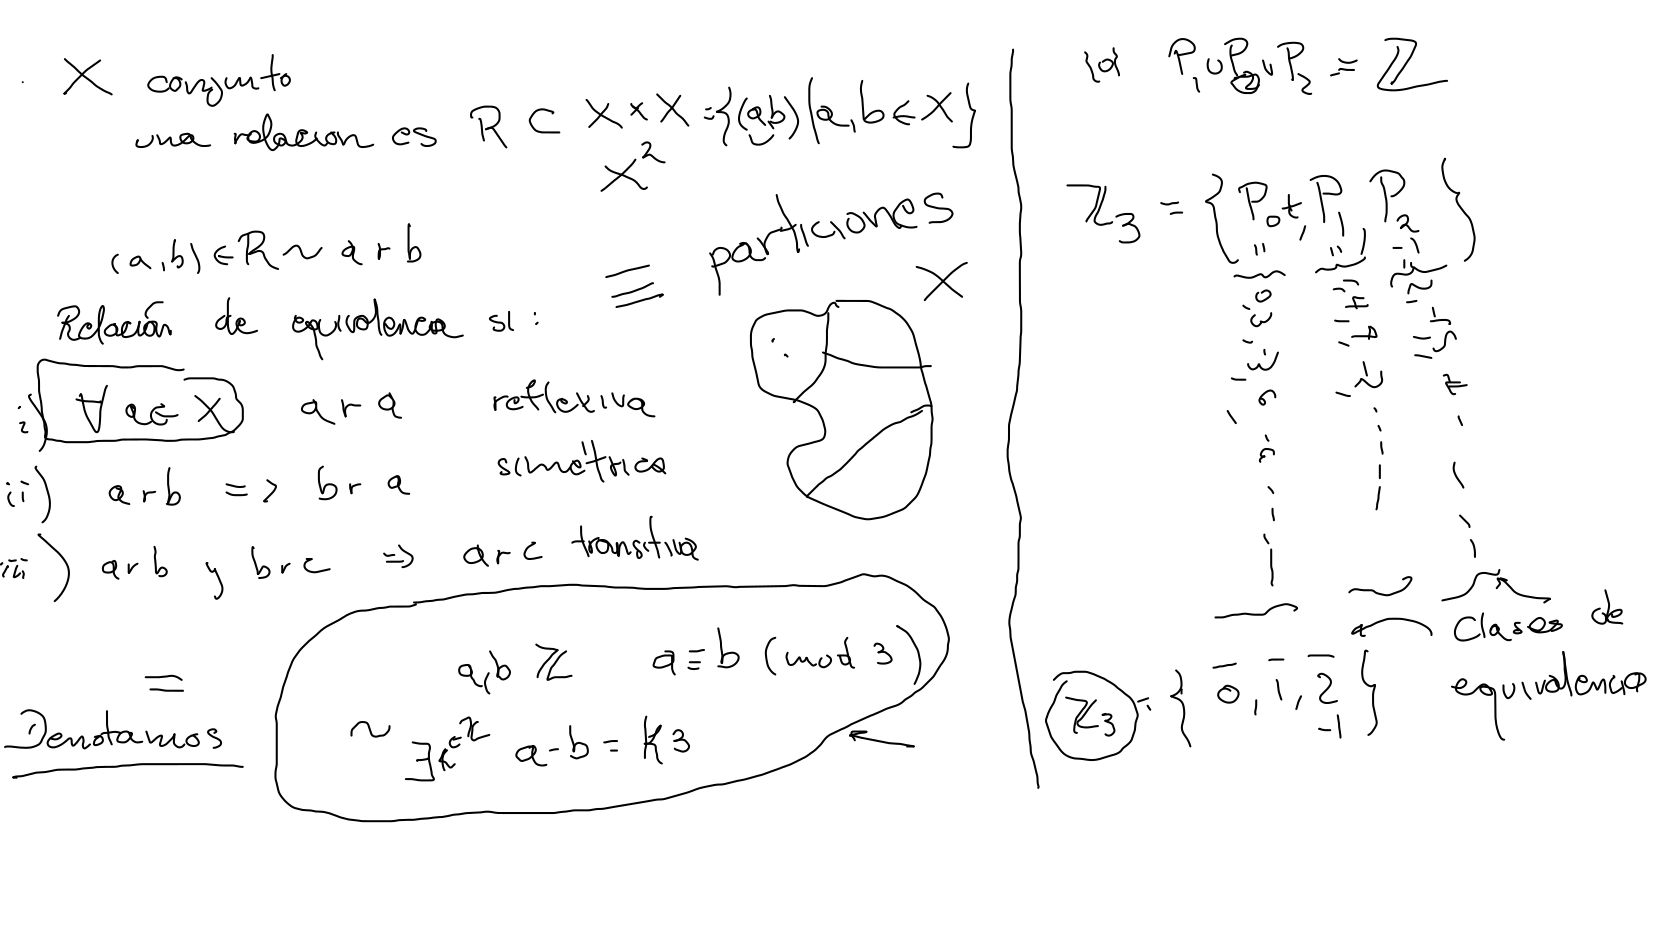 X conjunto
una relacion es R ⊂ X × X = {(a,b) | a,b ∈ X}
X²
(a,b) ∈ R ~ a r b
≡ particiones
X
Relación de equivalencia si:
i) ∀ a ∈ X a r a reflexiva
ii) a r b => b r a simétrica
iii) a r b y b r c => a r c transitiva
a,b ℤ a ≡ b (mod 3)
=
Denotamos
~ ∃ k ∈ ℤ a - b = k 3
P₁ ∪ P₀ ∪ P₂ = ℤ
ℤ₃ = { P₀, P₁, P₂ }
Clases de
equivalencia
ℤ₃ = { 0̅, 1̅, 2̅ }
-1